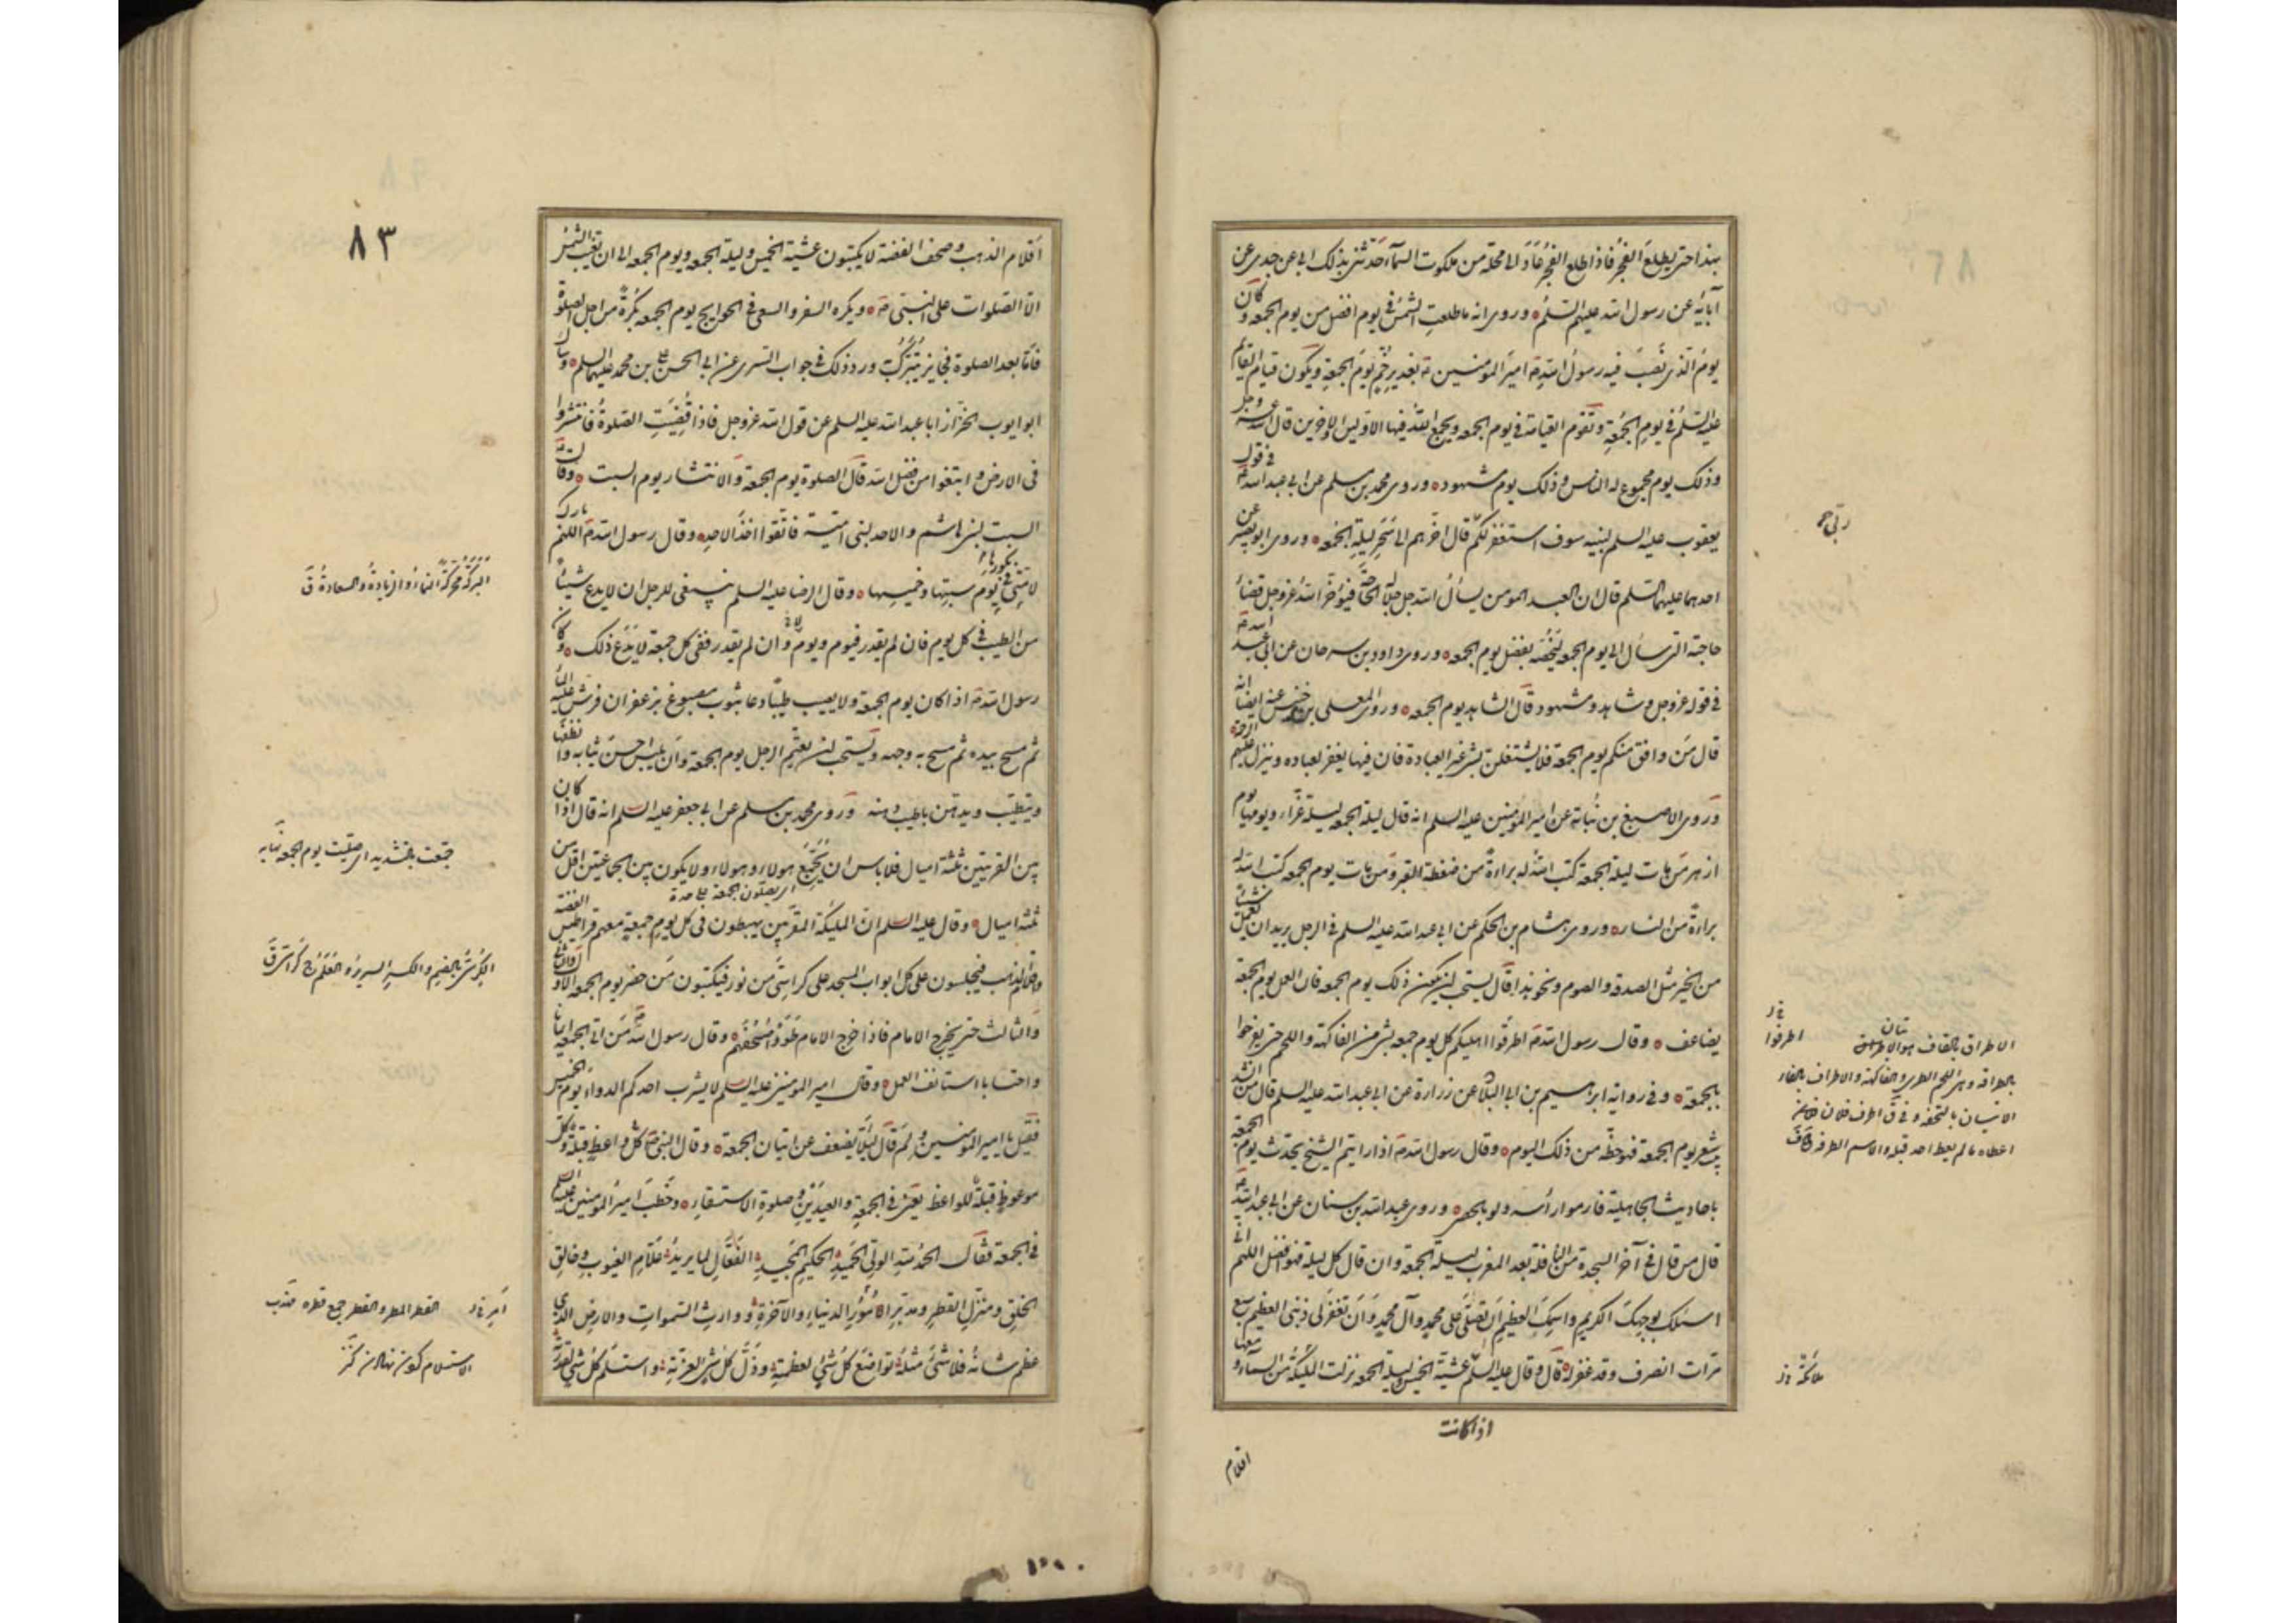 بهذا حتى يطلع الفجر فاذا طلع الفجر عاد الى محله من ملكوت السمآء حدثنى بذلك ابى عن جدى عن
آبائه عن رسول الله عليهم السلم وروى انه ما طلعت الشمس فى يوم افضل من يوم الجمعه وكان
يوم الذى نصب فيه رسول الله ص امير المومنين ع بغدير خم يوم الجمعة ويكون قيام القايم
عليه السلم فى يوم الجمعة وتقوم القيامة فى يوم الجمعه ويجمع الله فيها الاولين والاخرين قال الله عز وجل
وذلك يوم مجموع له الناس وذلك يوم مشهود وروى محمد بن مسلم عن ابى عبد الله ع فى قول
يعقوب عليه السلم لبنيه سوف استغفر لكم قال اخرهم الى سحر ليلة الجمعه وروى ابو بصير عن
احدهما عليهما السلم قال ان العبد المومن يسأل الله جل جلاله الحاجة فيؤخر الله عز وجل قضاء
حاجته التى سأل الى يوم الجمعه ليخصه بفضل يوم الجمعه وروى داود بن سرحان عن ابى عبد الله ع
فى قوله عز وجل وشاهد ومشهود قال الشاهد يوم الجمعه وروى المعلى بن خنيس عنه ايضا انه
قال من وافق منكم يوم الجمعة فلا يشتغلن بشئ غير العبادة فان فيها يغفر لعباده وينزل عليهم الرحمة
وروى الاصبغ بن نباتة عن امير المؤمنين عليه السلم انه قال ليلة الجمعه ليلة غراء ويومها يوم
ازهر من مات ليلة الجمعه كتب الله له براءة من ضغطة القبر ومن مات يوم الجمعه كتب الله له
براءة من النار وروى هشام بن الحكم عن ابى عبد الله عليه السلم فى الرجل يريد ان يعمل شيئا
من الخير مثل الصدقه والصوم ونحو هذا قال يستحب ان يكون ذلك يوم الجمعه فان العمل يوم الجمعة
يضاعف وقال رسول الله ص اطرقوا اهليكم كل يوم جمعه بشئ من الفاكهة واللحم حتى يفرحوا
بالجمعة وفى رواية ابرهيم بن ابى البلاد عن زرارة عن ابى عبد الله عليه السلم قال من انشد
بيت شعر يوم الجمعة فهو حظه من ذلك اليوم وقال رسول الله ص اذا رايتم الشيخ يحدث يوم الجمعة
باحاديث الجاهلية فارموا رأسه ولو بالحصى وروى عبد الله بن سنان عن ابى عبد الله ع
قال من قال فى آخر السجدة من النافلة بعد المغرب ليلة الجمعة وان قال كل ليلة فهو افضل اللهم انى
اسئلك بوجهك الكريم واسمك العظيم ان تصلى على محمد وآل محمد وان تغفر لى ذنبى العظيم سبع
مرات انصرف وقد غفر له قال وقال عليه السلم عشية الخميس وليلة الجمعه نزلت الملئكة من السمآء ومعها
اذا كانت
اقلام
ربى
اطرفوا
الاطراق بالقاف هو الاتيان
بالطراقة وهى اللحم الطرى والفاكهة والاطراف بالفاء
الاتيان بالتحفه وفى ق اطرف فلان فلانا
اعطاه ما لم يعط احد قبله والاسم الطرفه
ملائكة
٨٣
اقلام الذهب وصحف الفضة لا يكتبون عشية الخميس وليلة الجمعه ويوم الجمعه الى ان تغيب الشمس
الا الصلوات على النبى ص ويكره السفر والسعى فى الحوايج يوم الجمعه بكرة من اجل الصلوة
فاما بعد الصلوة فجايز يتبرك به ورد ذلك فى جواب السرى عن ابى الحسن على بن محمد عليهما السلم وسأل
ابو ايوب الخزاز ابا عبد الله عليه السلم عن قول الله عز وجل فاذا قضيت الصلوة فانتشروا
فى الارض وابتغوا من فضل الله قال الصلوة يوم الجمعة والانتشار يوم السبت وقال ع
السبت لبنى هاشم والاحد لبنى امية فاتقوا اخذ الاحد وقال رسول الله ص اللهم بارك
لامتى فى بكورها يوم سبتها وخميسها وقال الرضا عليه السلم ينبغى للرجل ان لا يدع شيئا
من الطيب فى كل يوم فان لم يقدر فيوم ويوم لا وان لم يقدر ففى كل جمعة لا يدع ذلك وكان
رسول الله ص اذا كان يوم الجمعة ولا يصيب طيبا دعا بثوب مصبوغ بزعفران فرش عليه الماء
ثم مسح بيده ثم مسح به وجهه ويستحب ان يعتم الرجل يوم الجمعة وان يلبس احسن ثيابه وانظفها
ويتطيب ويدهن باطيب دهنه وروى محمد بن مسلم عن ابى جعفر عليه السلم انه قال اذا كان
بين القريتين ثلثة اميال فلا باس ان يجمع هولاء وهولاء ولا يكون بين الجماعتين اقل من
اى يصلون الجمعة على حدة
ثلثة اميال وقال عليه السلم ان الملئكة المقربين يهبطون فى كل يوم جمعة معهم قراطيس الفضة
واقلام الذهب فيجلسون على كل ابواب المسجد على كراسى من نور فيكتبون من حضر يوم الجمعه الاول والثانى
والثالث حتى يخرج الامام فاذا خرج الامام طووا صحفهم وقال رسول الله ص من اتى الجمعه ايمانا
واحتسابا استانف العمل وقال امير المومنين عليه السلم لا يشرب احدكم الدواء يوم الخميس
فقيل يا امير المومنين ولم قال لئلا يضعف عن اتيان الجمعة وقال النبى ص كل واعظ قبلة وكل
موعوظ قبلة للواعظ يعنى فى الجمعة والعيدين وصلوة الاستسقاء وخطب امير المومنين عليه السلم
فى الجمعة فقال الحمد لله الولى الحميد الحكيم المجيد الفعال لما يريد علام الغيوب وخالق
الخلق ومنزل القطر ومدبر الامور الدنيا والآخرة ووارث السموات والارض الذى
عظم شانه فلا شئ مثله تواضع كل شئ لعظمته وذل كل شئ لعزته واستسلم كل شئ لقدرته
البركة محركة النماء والزيادة والسعادة ق
جمعت بالتشديد اى صليت يوم الجمعة نهايه
الكرسى بالضم والكسر السرير والعلم ج كراسى ق
امر
القطر المطر والقطر جمع قطره
الاستسلام كردن نهادن كنز